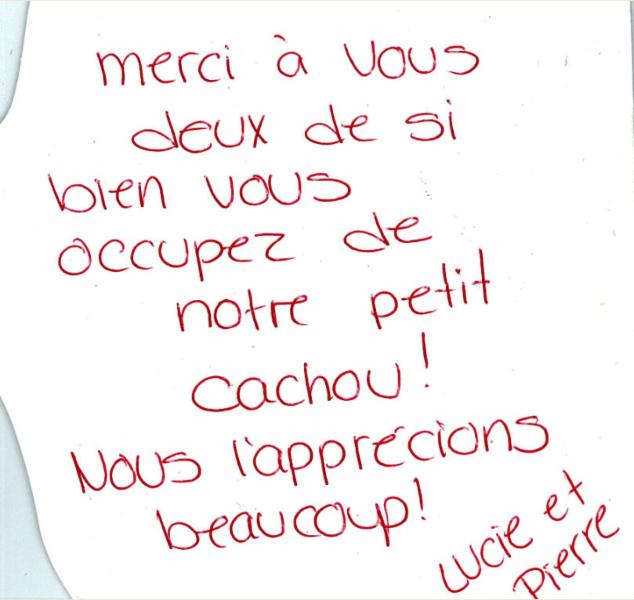 merci à vous
deux de si
bien vous
occupez de
notre petit
cachou!
Nous l'apprécions
beaucoup!
Lucie et
Pierre